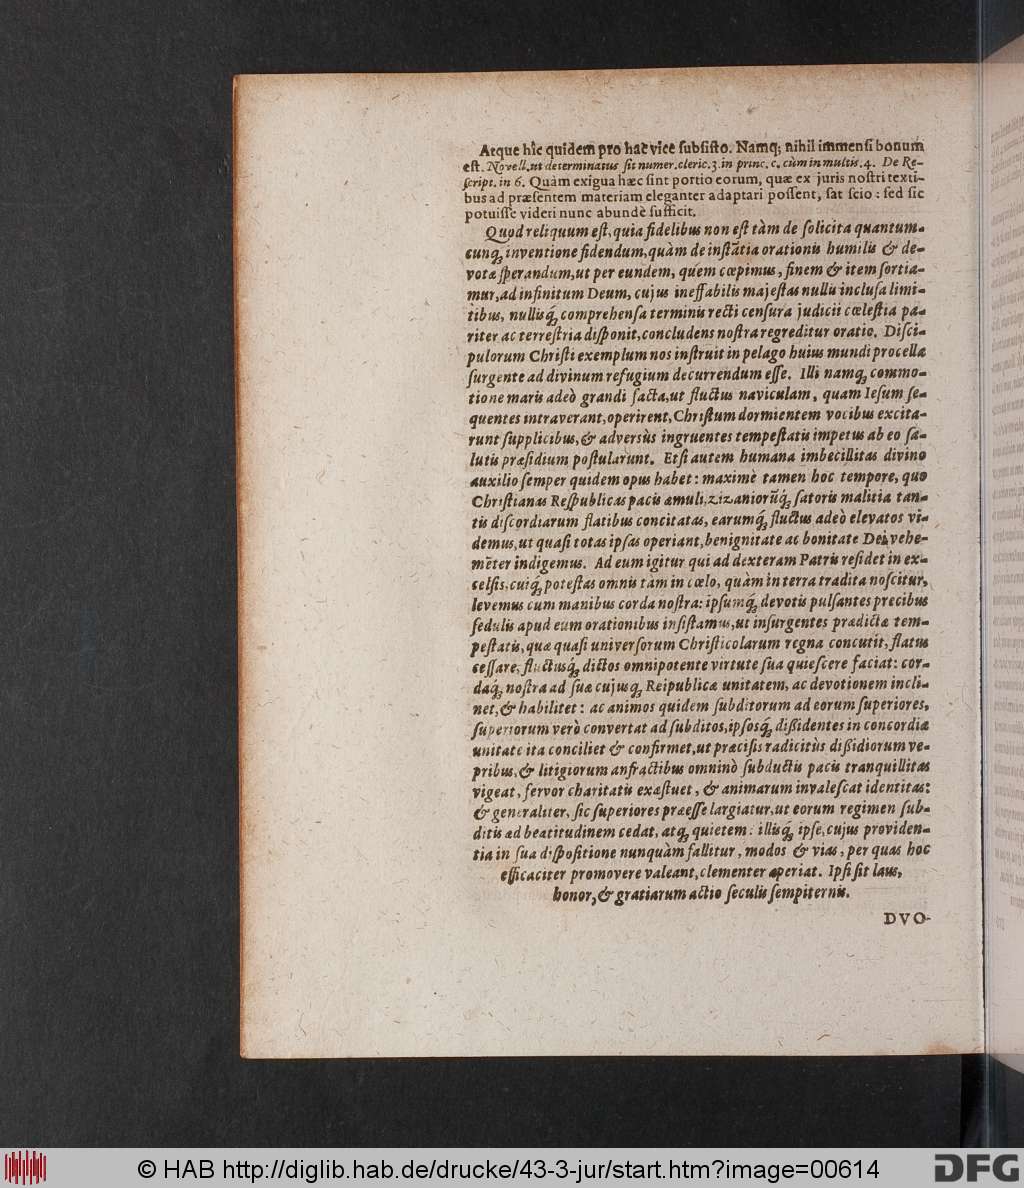 Atque hîc quidem pro hac vice subsisto. Namq; nihil immensi bonum
est. Novell. ut determinatus sit numer. cleric. 3. in princ. c. cùm in multis. 4. De Re-
script. in 6. Quàm exigua hæc sint portio eorum, quæ ex juris nostri texti-
bus ad præsentem materiam eleganter adaptari possent, sat scio: sed sic
potuisse videri nunc abundè sufficit.
Quod reliquum est, quia fidelibus non est tàm de solicita quantum-
cunq; inventione fidendum, quàm de instãtia orationis humilis & de-
votæ sperandum, ut per eundem, quem cœpimus, finem & item sortia-
mur, ad infinitum Deum, cujus ineffabilis majestas nullis inclusa limi-
tibus, nullisq; comprehensa terminis recti censura judicii cœlestia pa-
riter ac terrestria disponit, concludens nostra regreditur oratio. Disci-
pulorum Christi exemplum nos instruit in pelago huius mundi procella
surgente ad divinum refugium decurrendum esse. Illi namq; commo-
tione maris adeò grandi facta, ut fluctus naviculam, quam Iesum se-
quentes intraverant, operirent, Christum dormientem vocibus excita-
runt supplicibus, & adversùs ingruentes tempestatis impetus ab eo sa-
lutis præsidium postularunt. Etsi autem humana imbecillitas divino
auxilio semper quidem opus habet: maximè tamen hoc tempore, quo
Christianas Respublicas pacis æmuli, zizaniorũq; satoris malitia tan-
tis discordiarum flatibus concitatas, earumq; fluctus adeò elevatos vi-
demus, ut quasi totas ipsas operiant, benignitate ac bonitate Dei vehe-
mẽter indigemus. Ad eum igitur qui ad dexteram Patris residet in ex-
celsis, cuiq; potestas omnis tàm in cœlo, quàm in terra tradita noscitur,
levemus cum manibus corda nostra: ipsumq; devotis pulsantes precibus
sedulis apud eum orationibus insistamus, ut insurgentes prædictæ tem-
pestatis, quæ quasi universorum Christicolarum regna concutit, flatus
cessare, fluctusq; dictos omnipotente virtute sua quiescere faciat: cor-
daq; nostra ad suæ cujusq; Reipublicæ unitatem, ac devotionem incli-
net, & habilitet: ac animos quidem subditorum ad eorum superiores,
superiorum verò convertat ad subditos, ipsosq; dißidentes in concordiæ
unitate ita conciliet & confirmet, ut præcisis radicitùs dißidiorum ve-
pribus, & litigiorum anfractibus omninò subductis pacis tranquillitas
vigeat, fervor charitatis exæstuet, & animarum invalescat identitas:
& generaliter, sic superiores præesse largiatur, ut eorum regimen sub-
ditis ad beatitudinem cedat, atq; quietem: illisq; ipse, cujus providen-
tia in sua dispositione nunquàm fallitur, modos & vias, per quas hoc
efficaciter promovere valeant, clementer aperiat. Ipsi sit laus,
honor, & gratiarum actio seculis sempiternis.
DVO-
© HAB http://diglib.hab.de/drucke/43-3-jur/start.htm?image=00614
DFG